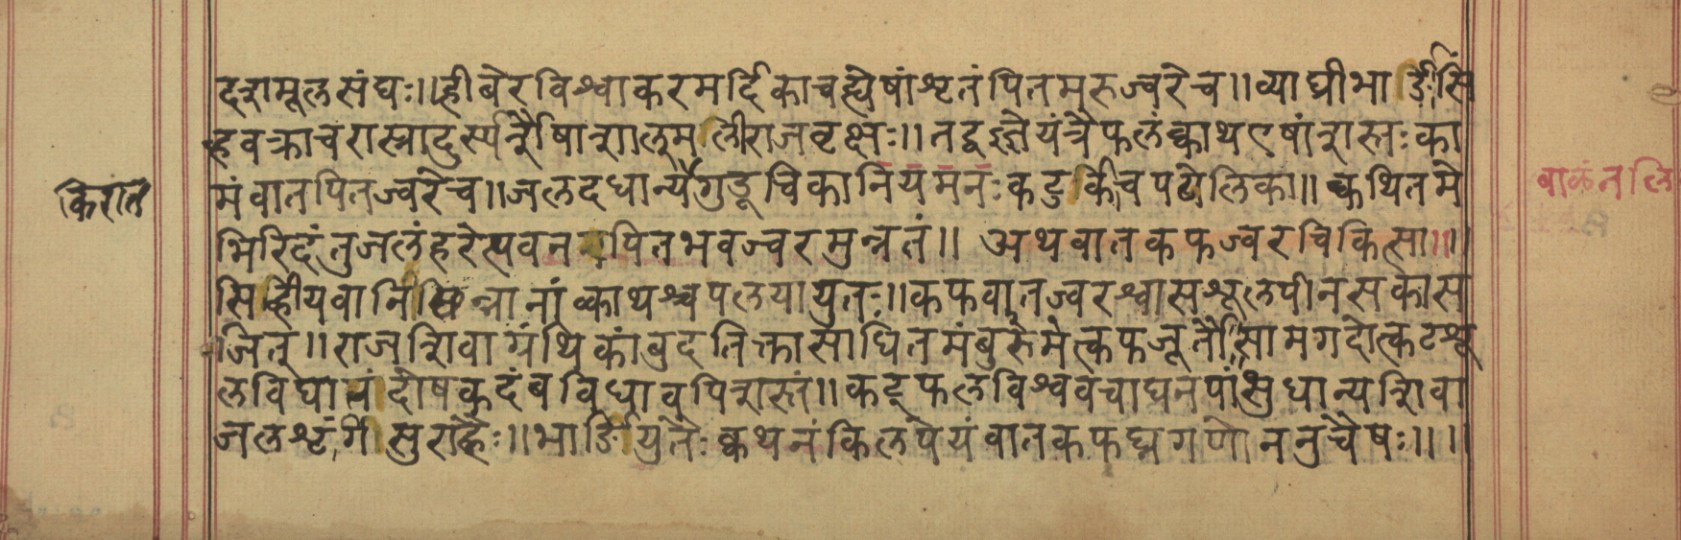 दशमूलसंघः॥ह्रीबेरविश्वाकरमर्दिकाचह्येषांशृतंपितमरुज्वरेच॥व्याघ्रीभार्ङीसिं
हवक्राचरास्नादुर्स्पर्शैषाशालुमलीराजवृक्षः॥तद्वज्ज्ञेयंत्रैफलंक्वाथएषांशस्तःका
मंवातपितज्वरेच॥जलदधान्यैगुडूचिकानियमनःकटुर्किचपटोलिका॥क्वथितमे
किरात
वाकंतलि
भिरिदंतुजलंहरेत्पवनपितभवज्वरमुन्नतं॥ अथवातकफज्वरचिकित्सा॥॥
सिंहीयवानिछिन्नानांक्वाथश्चपलयायुतः॥कफवातज्वरश्वासश्शूलपीनसकास
जित्॥राजशिवाग्रंथिकांबुदतिक्तासाधितमंबुरुमेत्कफजूर्तौसामगदोत्कटशू
लविघातंदोषकदंबविधावपिशस्तं॥कट्फलविश्ववचाघनपांसुधान्यशिवा
जलशृंगीसुराह्वैः॥भार्ङियुतैःक्वथनंकिलपेयंवातकफघ्नगणोननुचैषः॥॥